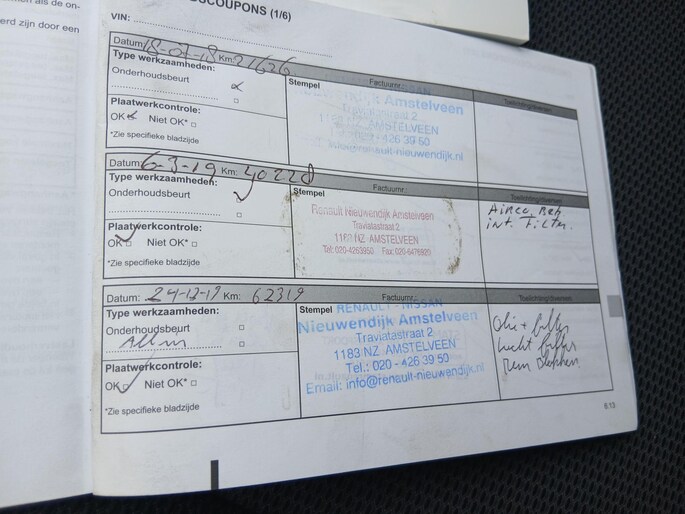 als de on-
erd zijn door een
SCOUPONS (1/6)
VIN:
Datum: 18-07-18 Km: 21626
Type werkzaamheden:
Onderhoudsbeurt
Plaatwerkcontrole:
OK Niet OK*
*Zie specifieke bladzijde
Stempel
Factuurnr.:
Nieuwendijk Amstelveen
Traviatastraat 2
AMSTELVEEN
020 - 426 39 50
info@renault-nieuwendijk.nl
Datum: 6-3-19 Km: 40228
Type werkzaamheden:
Onderhoudsbeurt
Plaatwerkcontrole:
OK Niet OK*
*Zie specifieke bladzijde
Stempel
Factuurnr.:
Renault Nieuwendijk Amstelveen
Traviatastraat 2
1183 NZ AMSTELVEEN
Tel: 020-4263950 Fax: 020-6476920
Airco Beh
int. Filter.
Datum: 24-12-19 Km: 62319
Type werkzaamheden:
Onderhoudsbeurt
Plaatwerkcontrole:
OK Niet OK*
*Zie specifieke bladzijde
Stempel
Factuurnr.:
RENAULT - NISSAN
Nieuwendijk Amstelveen
Traviatastraat 2
1183 NZ AMSTELVEEN
Tel.: 020 - 426 39 50
Email: info@renault-nieuwendijk.nl
Olie + filter
lucht filter
6.13